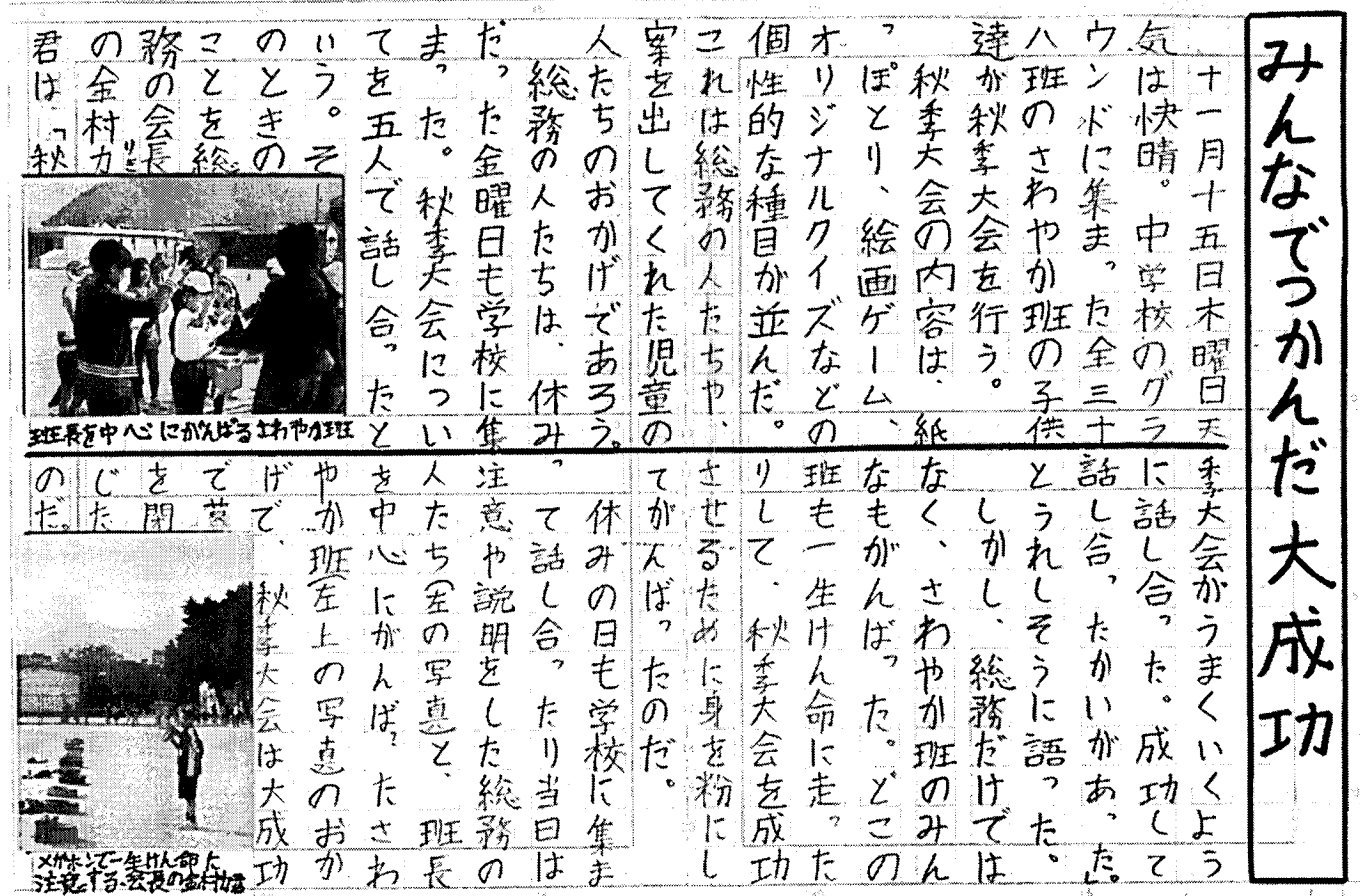 みんなでつかんだ大成功
十一月十五日木曜日天
気は快晴。中学校のグラ
ウンドに集まった全三十
八班のさわやか班の子供
達が秋季大会を行う。
秋季大会の内容は、紙
っぽとり、絵画ゲーム、
オリジナルクイズなどの
個性的な種目が並んだ。
これは総務の人たちや、
案を出してくれた児童の
人たちのおかげであろう。
総務の人たちは、休み
だった金曜日も学校に集
まった。秋季大会につい
てを五人で話し合ったと
いう。そ
のときの
ことを総
務の会長
の金村力
君は「秋
班長を中心にがんばるさわやか班
季大会がうまくいくよう
に話し合った。成功して
話し合ったかいがあった」
とうれしそうに語った。
しかし、総務だけでは
なく、さわやか班のみん
なもがんばった。どこの
班も一生けん命に走った
りして、秋季大会を成功
させるために身を粉にし
てがんばったのだ。
休みの日も学校に集ま
って話し合ったり当日は
注意や説明をした総務の
人たち(左の写真)と、班長
を中心にがんばったさわ
やか班(左上の写真)のおか
げで、秋季大会は大成功
で幕
を閉
じた
のだ。
メガホンで一生けん命に
注意する、会長の金村力君